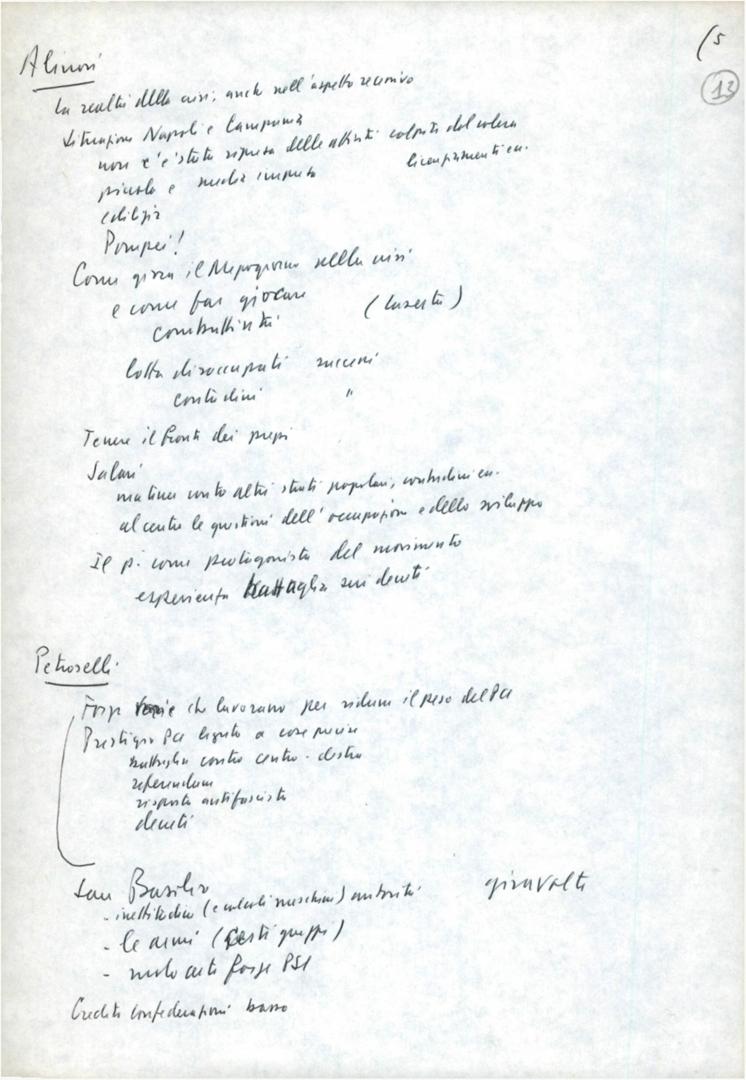 (5
13
Alinovi
La realtà della crisi, anche nell'aspetto recessivo
Situazione Napoli e Campania
non c'è stata ripresa delle attività colpite dal colera
piccola e media impresa licenziamenti ecc.
edilizia
Pompei!
Come gioca il Mezzogiorno nella crisi
e come far giocare
combattività (Caserta)
lotta disoccupati successi
contadini "
Tenere il fronte dei prezzi
Salari
ma tener conto altri strati popolari, contadini ecc.
al centro le questioni dell'occupazione e dello sviluppo
Il p. come protagonista del movimento
esperienza battaglia sui decreti
Petroselli
Forze varie che lavorano per ridurre il peso del PCI
Prestigio PCI legato a cose precise
battaglia contro centro-destra
referendum
risposta antifascista
decreti
San Basilio giravolte
- inettitudine (e calcoli meschini) autorità
- le armi (certi gruppi)
- ruolo certe forze PSI
Credito confederazioni basso